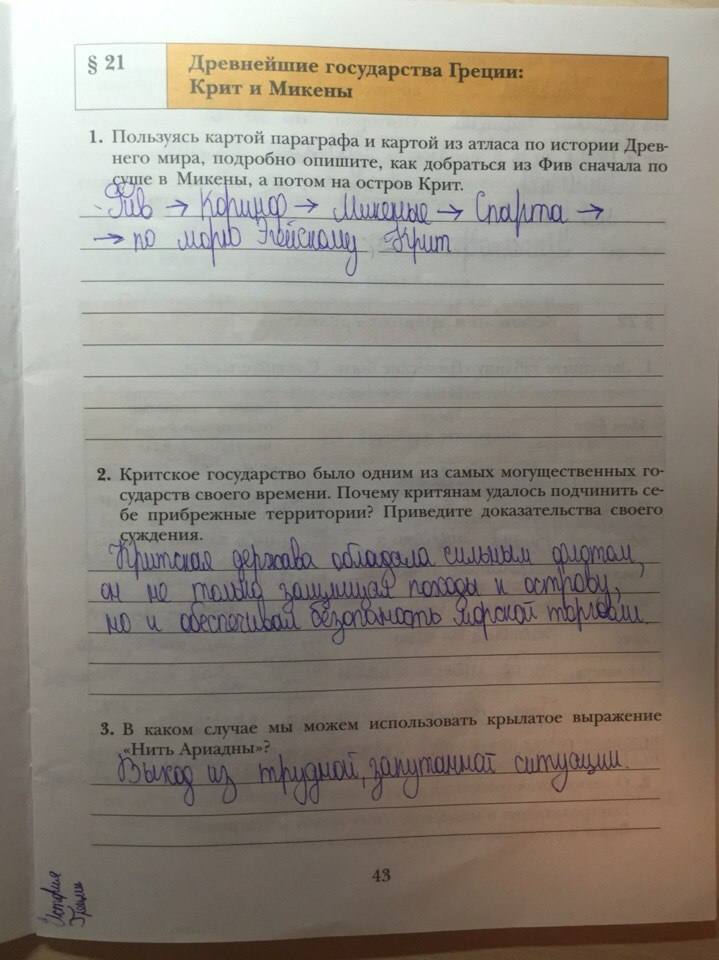 § 21
Древнейшие государства Греции:
Крит и Микены
1. Пользуясь картой параграфа и картой из атласа по истории Древ-
него мира, подробно опишите, как добраться из Фив сначала по
суше в Микены, а потом на остров Крит.
Фив → Коринф → Микены → Спарта →
→ по морю Эгейскому Крит
2. Критское государство было одним из самых могущественных го-
сударств своего времени. Почему критянам удалось подчинить се-
бе прибрежные территории? Приведите доказательства своего
суждения.
Критская держава обладала сильным флотом,
он не только защищал походы к острову,
но и обеспечивал безопасность морской торговли.
3. В каком случае мы можем использовать крылатое выражение
«Нить Ариадны»?
Выход из трудной, запутанной ситуации.
43
История
Греции